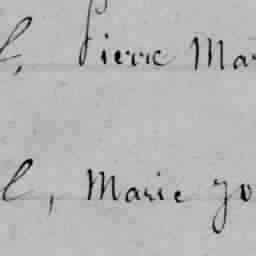 l, Pierre Mar
l, Marie yo